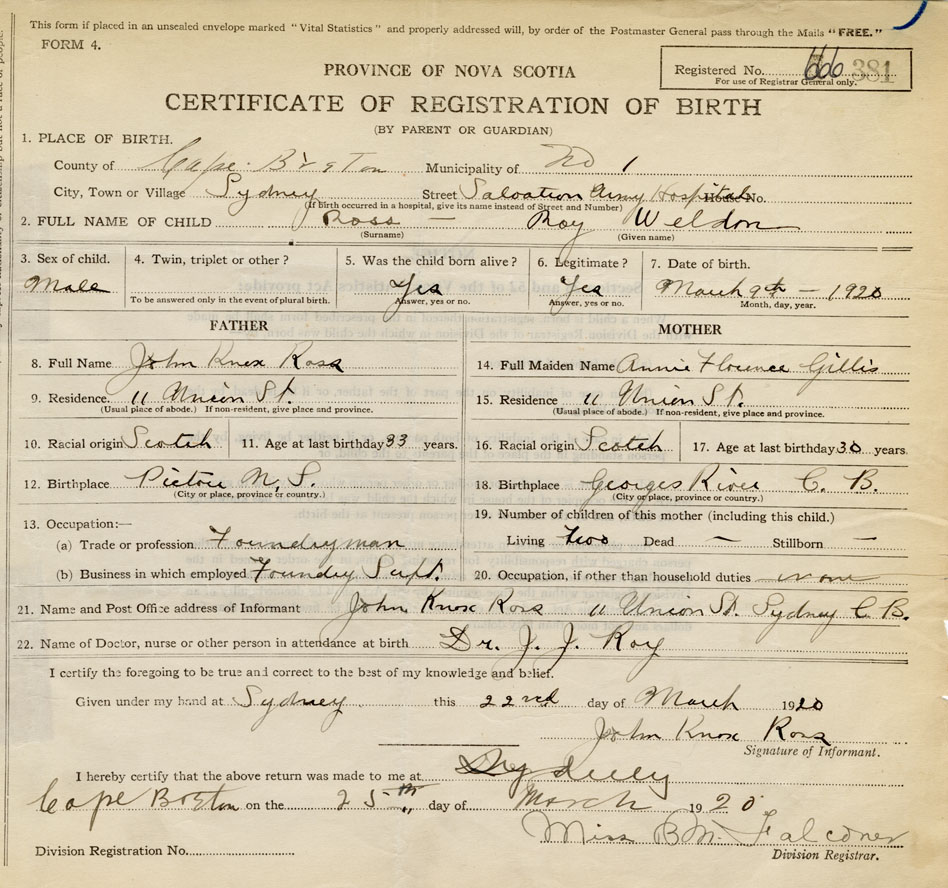 This form if placed in an unsealed envelope marked "Vital Statistics" and properly addressed will, by order of the Postmaster General pass through the Mails "FREE."
FORM 4.
PROVINCE OF NOVA SCOTIA
Registered No. 666 381
For use of Registrar General only.
CERTIFICATE OF REGISTRATION OF BIRTH
(BY PARENT OR GUARDIAN)
1. PLACE OF BIRTH.
County of Cape Breton Municipality of No 1
City, Town or Village Sydney Street Salvation Army Hospital House No.
(If birth occurred in a hospital, give its name instead of Street and Number)
2. FULL NAME OF CHILD Ross — Roy Weldon
(Surname) (Given name)
3. Sex of child. 4. Twin, triplet or other? 5. Was the child born alive? 6. Legitimate? 7. Date of birth.
Male Yes Yes March 9th - 1920
To be answered only in the event of plural birth. Answer, yes or no. Answer, yes or no. Month, day, year.
FATHER MOTHER
8. Full Name John Knox Ross 14. Full Maiden Name Annie Florence Gillis
9. Residence. 11 Union St. 15. Residence 11 Union St.
(Usual place of abode.) If non-resident, give place and province. (Usual place of abode.) If non-resident, give place and province.
10. Racial origin Scotch 11. Age at last birthday 33 years. 16. Racial origin Scotch 17. Age at last birthday 30 years.
12. Birthplace Pictou N.S. 18. Birthplace Georges River C. B.
(City or place, province or country.) (City or place, province or country.)
13. Occupation:— 19. Number of children of this mother (including this child.)
(a) Trade or profession Foundryman Living two Dead — Stillborn —
(b) Business in which employed Foundry Supt. 20. Occupation, if other than household duties none
21. Name and Post Office address of Informant John Knox Ross 11 Union St. Sydney C. B.
22. Name of Doctor, nurse or other person in attendance at birth Dr. J. J. Roy
I certify the foregoing to be true and correct to the best of my knowledge and belief.
Given under my hand at Sydney this 22nd day of March 1920
John Knox Ross
Signature of Informant.
I hereby certify that the above return was made to me at Sydney
Cape Breton on the 25th day of March 1920
Miss B M. Falconer
Division Registration No. Division Registrar.